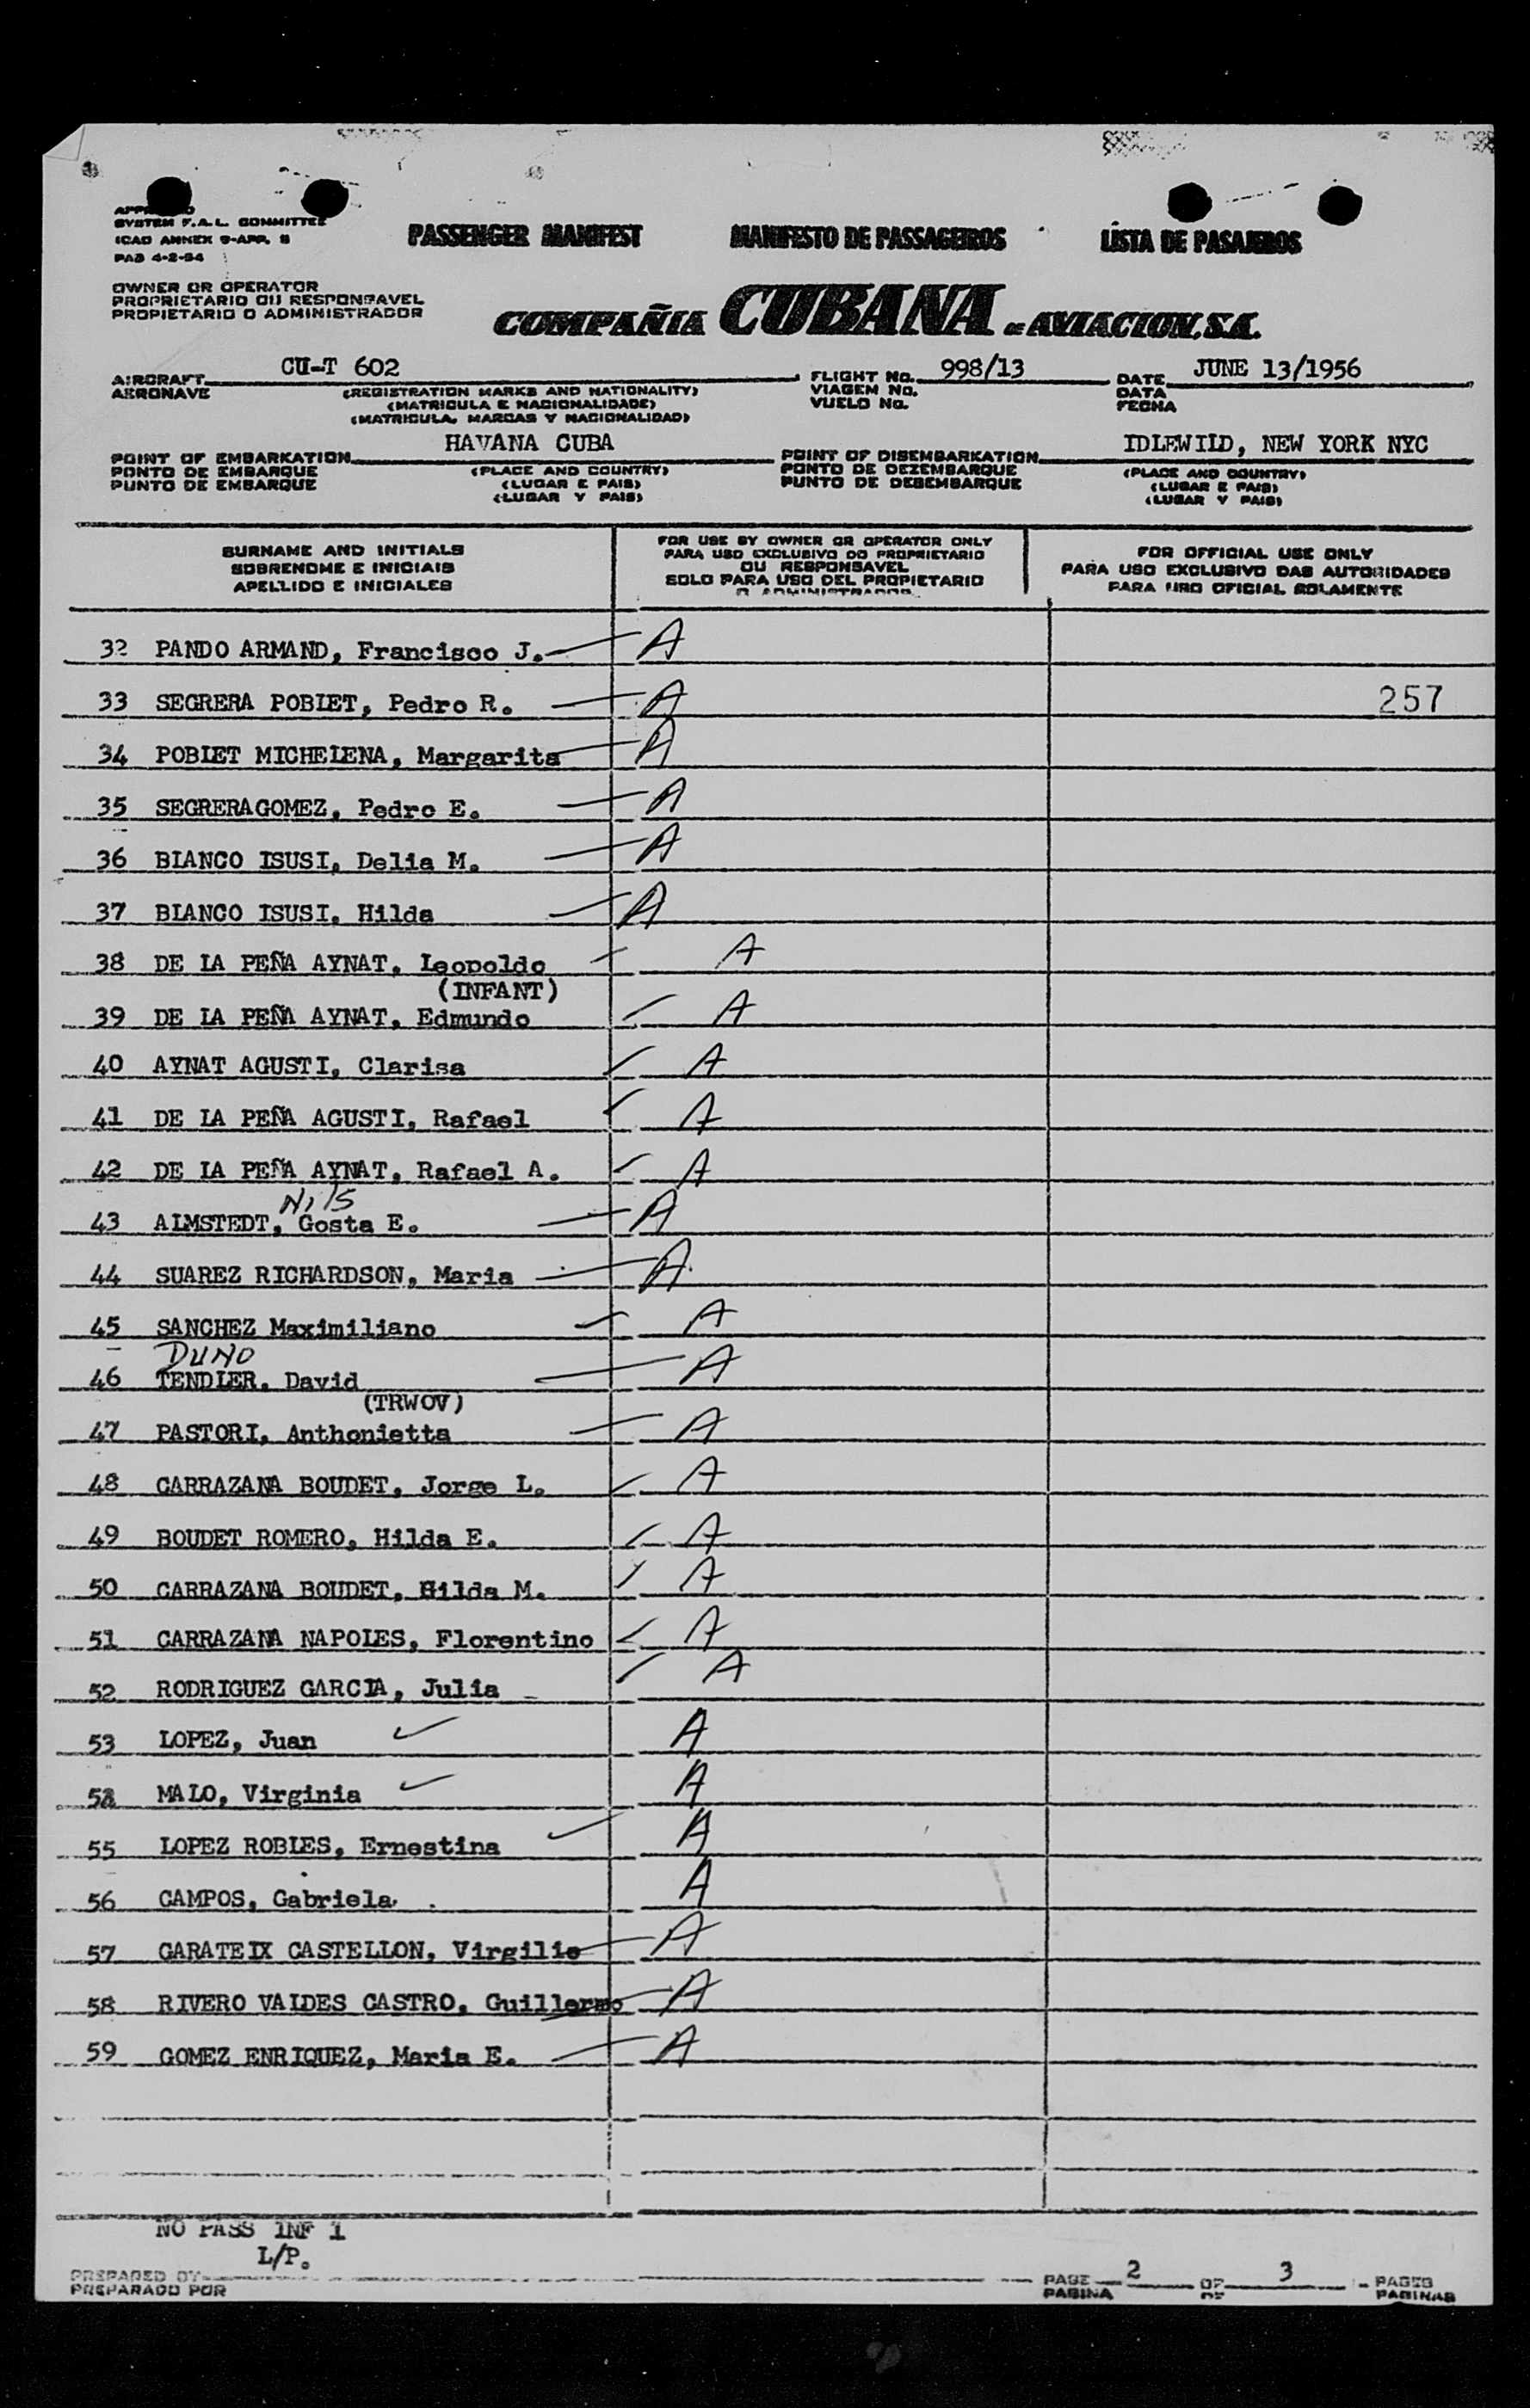 SYSTEM F.A.L. COMMITTEE
ICAO ANNEX 9-APP. 5
PAB 4-2-54
PASSENGER MANIFEST MANIFESTO DE PASSAGEIROS LISTA DE PASAJEROS
OWNER OR OPERATOR
PROPRIETARIO OU RESPONSAVEL
PROPIETARIO O ADMINISTRADOR
COMPAÑIA CUBANA DE AVIACION, S.A.
AIRCRAFT CU-T 602 FLIGHT No. 998/13 DATE JUNE 13/1956
AERONAVE (REGISTRATION MARKS AND NATIONALITY) VIAGEM No. DATA
(MATRICULA E NACIONALIDADE) VUELO No. FECHA
(MATRICULA, MARCAS Y NACIONALIDAD)
POINT OF EMBARKATION HAVANA CUBA POINT OF DISEMBARKATION IDLEWILD, NEW YORK NYC
PONTO DE EMBARQUE (PLACE AND COUNTRY) PONTO DE DEZEMBARQUE (PLACE AND COUNTRY)
PUNTO DE EMBARQUE (LUGAR E PAIS) PUNTO DE DESEMBARQUE (LUGAR E PAIS)
(LUGAR Y PAIS) (LUGAR Y PAIS)
SURNAME AND INITIALS
SOBRENOME E INICIAIS
APELLIDO E INICIALES
FOR USE BY OWNER OR OPERATOR ONLY
PARA USO EXCLUSIVO DO PROPRIETARIO
OU RESPONSAVEL
SOLO PARA USO DEL PROPIETARIO
O ADMINISTRADOR
FOR OFFICIAL USE ONLY
PARA USO EXCLUSIVO DAS AUTORIDADES
PARA USO OFICIAL SOLAMENTE
32 PANDO ARMAND, Francisco J. A
33 SEGRERA POBLET, Pedro R. A 257
34 POBLET MICHELENA, Margarita A
35 SEGRERA GOMEZ, Pedro E. A
36 BLANCO ISUSI, Delia M. A
37 BLANCO ISUSI, Hilda A
38 DE LA PEÑA AYNAT, Leopoldo A
(INFANT)
39 DE LA PEÑA AYNAT, Edmundo A
40 AYNAT AGUSTI, Clarisa A
41 DE LA PEÑA AGUSTI, Rafael A
42 DE LA PEÑA AYNAT, Rafael A. A
Nils
43 ALMSTEDT, Gosta E. A
44 SUAREZ RICHARDSON, Maria A
45 SANCHEZ Maximiliano A
DUNO
46 TENDLER, David A
(TRWOV)
47 PASTORI, Anthonietta A
48 CARRAZANA BOUDET, Jorge L. A
49 BOUDET ROMERO, Hilda E. A
50 CARRAZANA BOUDET, Hilda M. A
51 CARRAZANA NAPOLES, Florentino A
52 RODRIGUEZ GARCIA, Julia A
53 LOPEZ, Juan A
MALO, Virginia A
55 LOPEZ ROBLES, Ernestina A
56 CAMPOS, Gabriela A
57 GARATEIX CASTELLON, Virgilio A
58 RIVERO VALDES CASTRO, Guillermo A
59 GOMEZ ENRIQUEZ, Maria E. A
NO PASS INF 1
L/P.
PREPARED BY PAGE 2 OF 3 PAGES
PREPARADO POR PAGINA DE PAGINAS